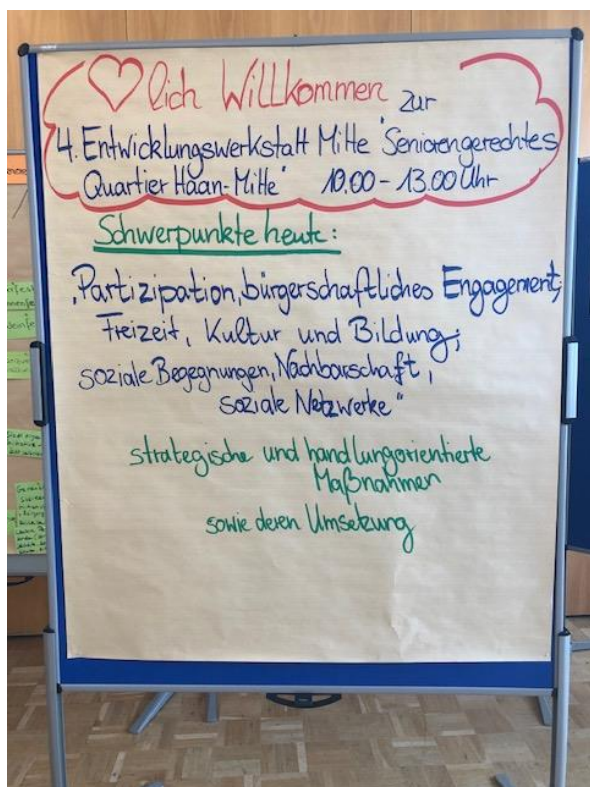 ♡lich Willkommen zur
4. Entwicklungswerkstatt Mitte "Seniorengerechtes
Quartier Haan-Mitte" 10.00 - 13.00 Uhr
Schwerpunkte heute:
"Partizipation, bürgerschaftliches Engagement;
Freizeit, Kultur und Bildung;
soziale Begegnungen, Nachbarschaft,
soziale Netzwerke"
strategische und handlungorientierte
Maßnahmen
sowie deren Umsetzung